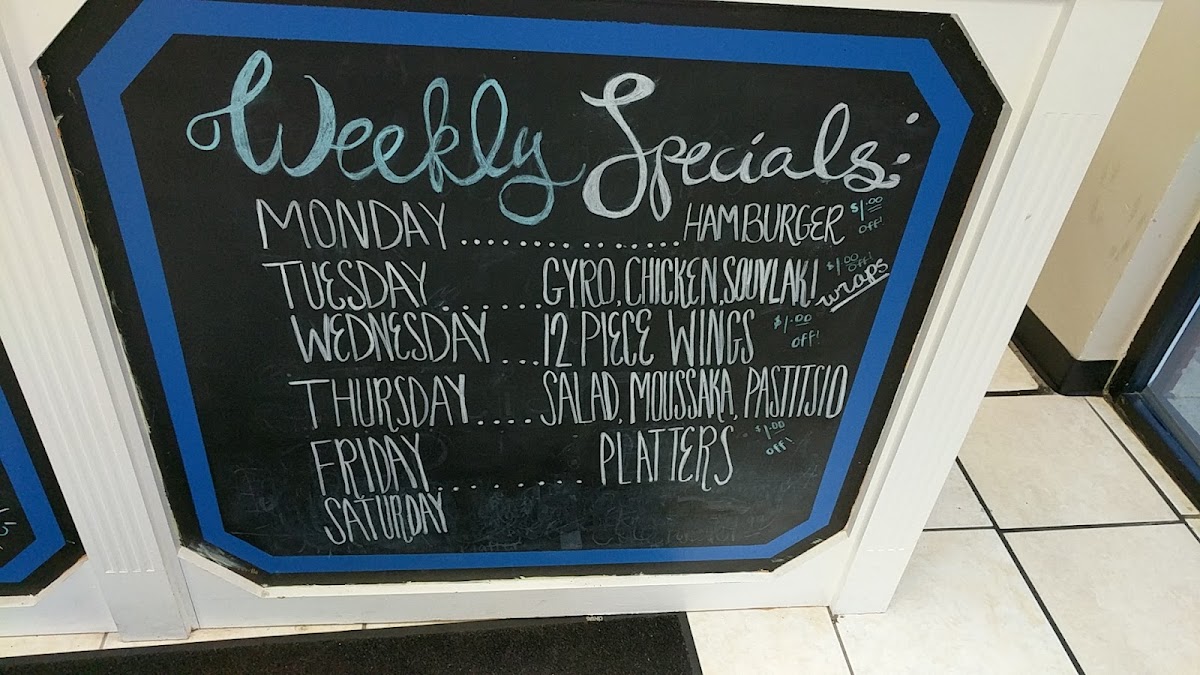 Weekly Specials:
MONDAY ................ HAMBURGER $1.00 OFF!
TUESDAY ....... GYRO, CHICKEN, SOUVLAKI wraps $1.00 OFF!
WEDNESDAY ... 12 PIECE WINGS $1.00 OFF!
THURSDAY .... SALAD, MOUSSAKA, PASTITSIO
FRIDAY ......... PLATTERS $1.00 OFF!
SATURDAY